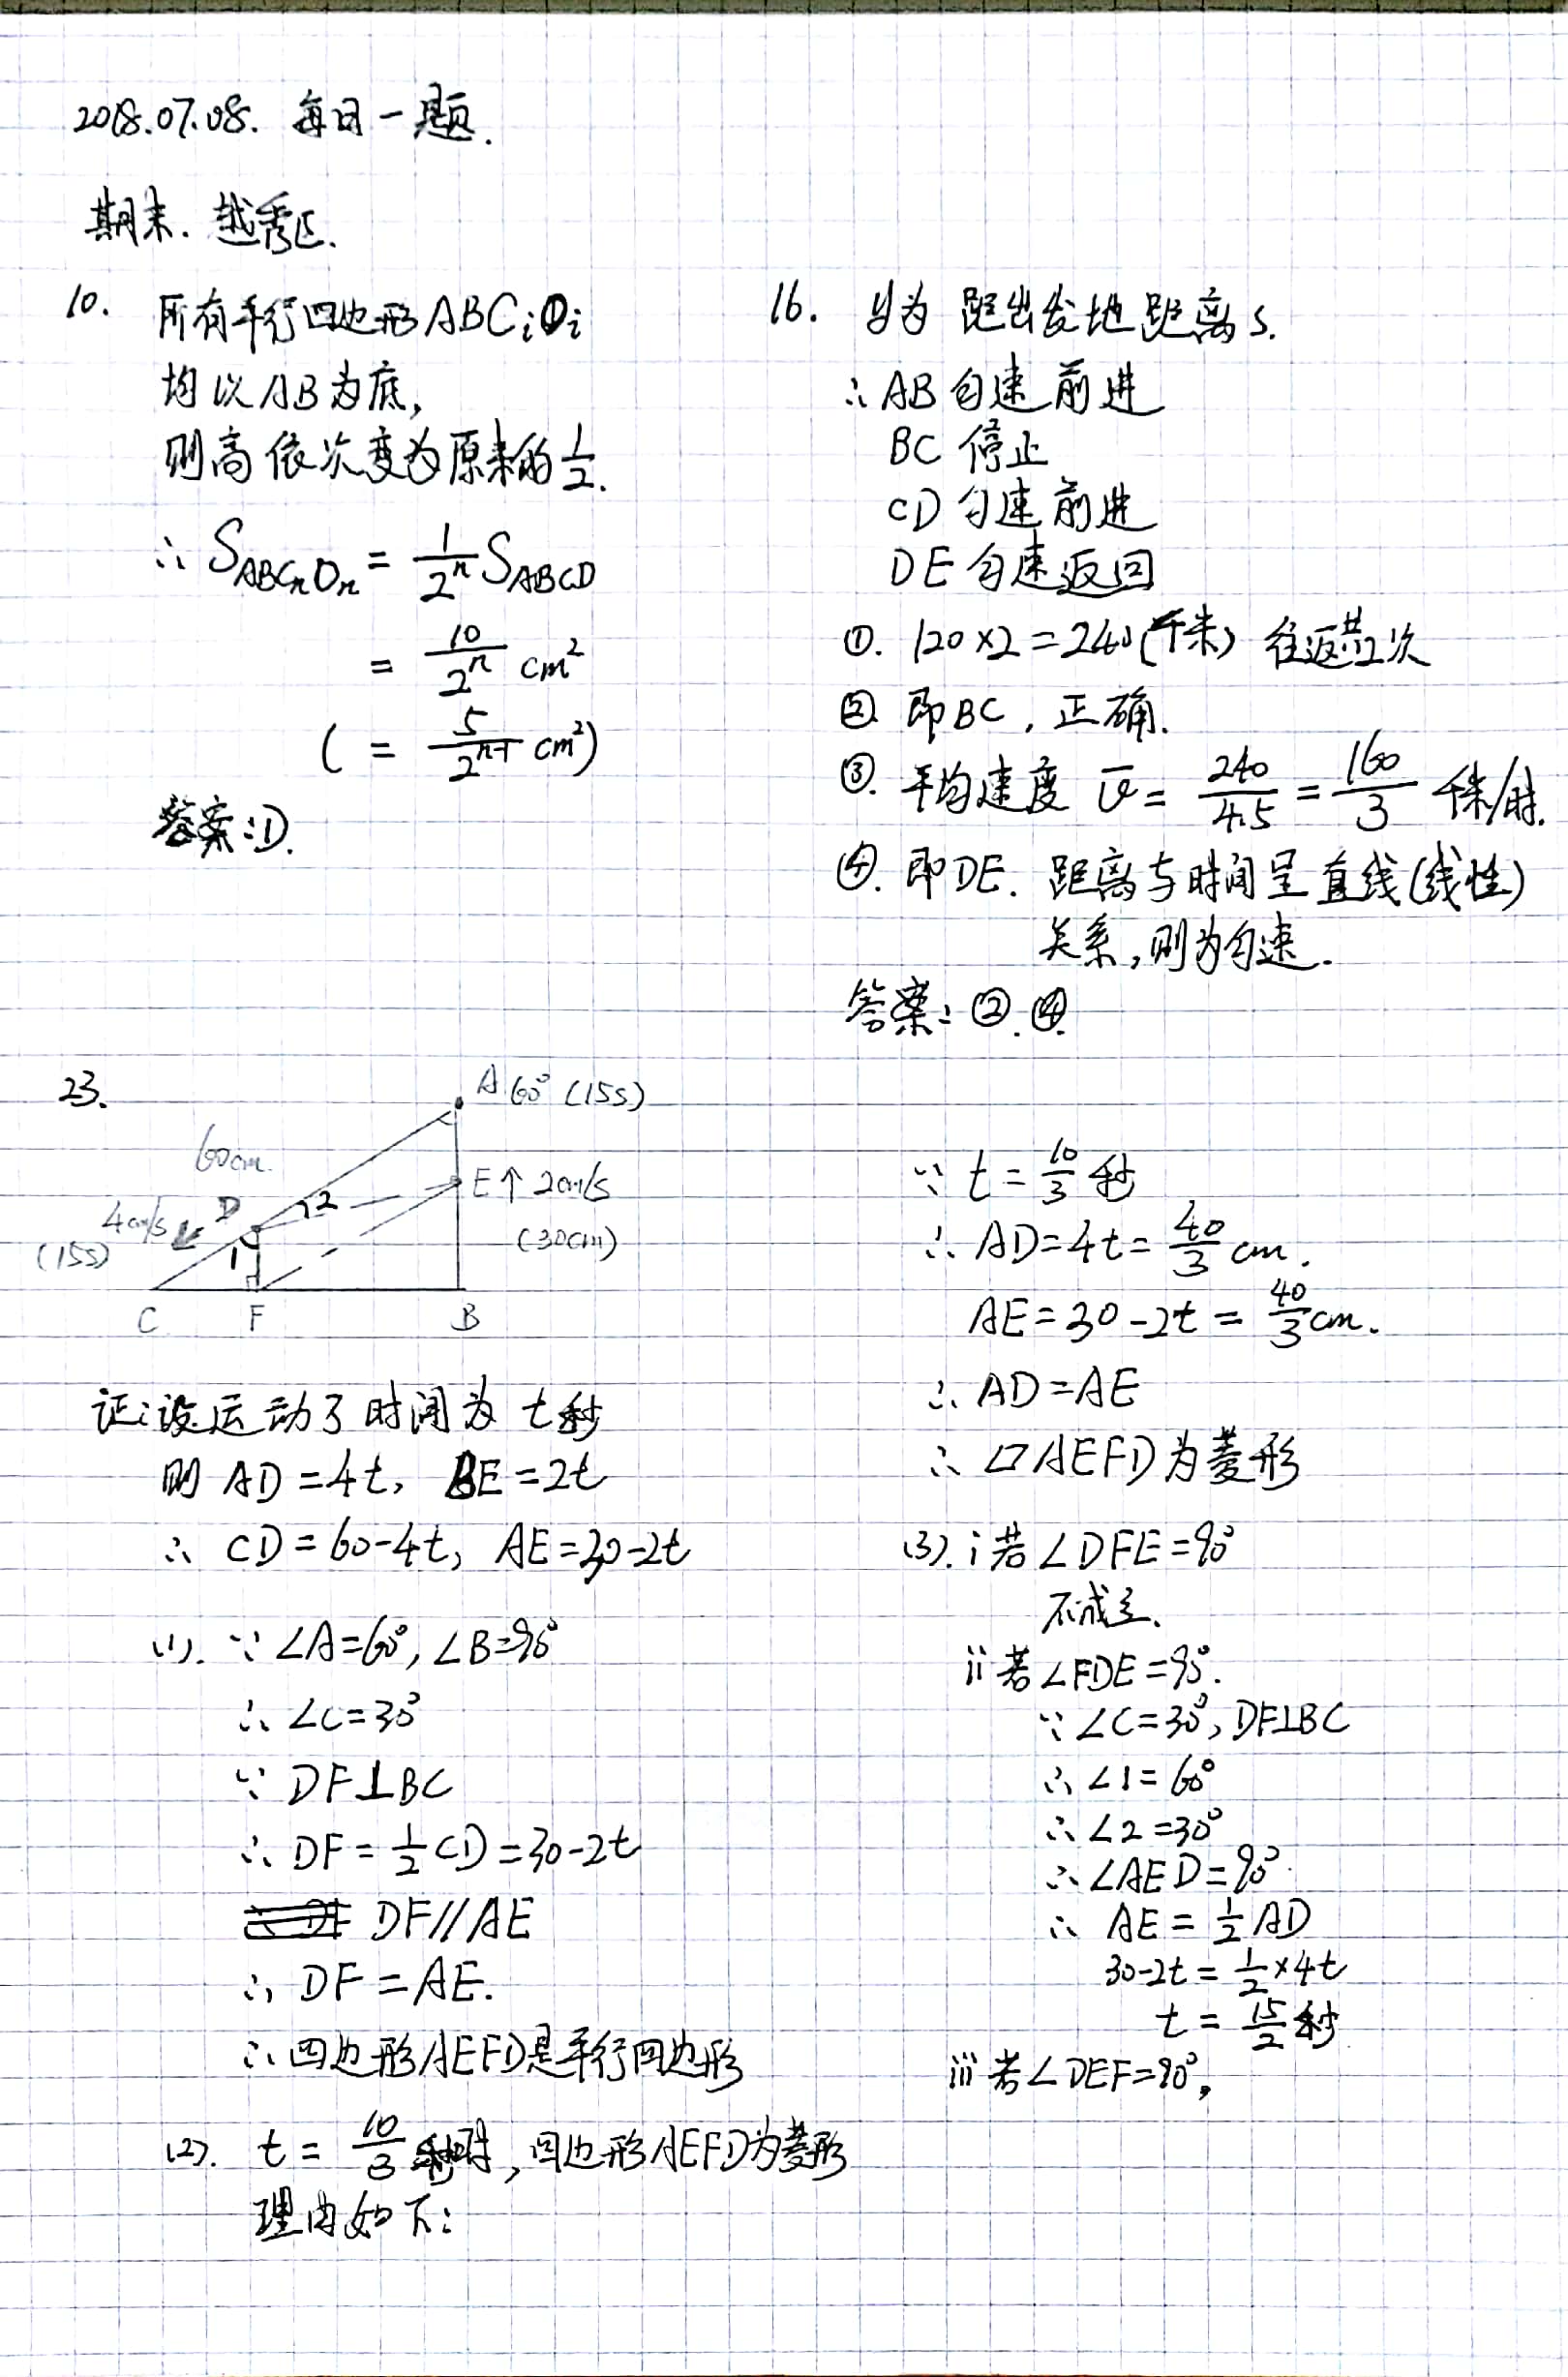 2018.07.08. 每日一题.
期末. 越秀区.
10. 所有平行四边形ABCiOi
均以AB为底,
则高依次变为原来的1/2.
∴ S_ABCnOn = 1/2^n S_ABCD
= 10/2^n cm²
( = 5/2^(n-1) cm²)
答案:D.
16. y为 距出发地距离s.
∴ AB匀速前进
BC 停止
CD匀速前进
DE匀速返回
①. 120×2=240(千米) 往返共2次
② 即BC, 正确.
③. 平均速度 v̄ = 240/4.5 = 160/3 千米/时.
④. 即DE. 距离与时间呈直线(线性)
关系,则为匀速.
答案: ②.④.
23.
A 60° (15s)
60cm.
E↑ 2cm/s
(30cm)
4cm/s
(15s)
D
2
1
C F B
证:设运动了时间为 t秒
则 AD=4t, BE=2t
∴ CD=60-4t, AE=30-2t
(1). ∵ ∠A=60°, ∠B=90°
∴ ∠C=30°
∵ DF⊥BC
∴ DF=1/2CD=30-2t
DF∥AE
∴ DF=AE.
∴ 四边形AEFD是平行四边形
(2). t= 10/3 秒时, 四边形AEFD为菱形
理由如下:
∵ t=10/3 秒
∴ AD=4t=40/3 cm.
AE=30-2t=40/3 cm.
∴ AD=AE
∴ ▱AEFD为菱形
(3). i 若∠DFE=90°
不成立.
ii 若∠FDE=90°.
∵ ∠C=30°, DF⊥BC
∴ ∠1=60°
∴ ∠2=30°
∴ ∠AED=90°
∴ AE=1/2AD
30-2t=1/2×4t
t=15/2秒
iii 若∠DEF=90°,